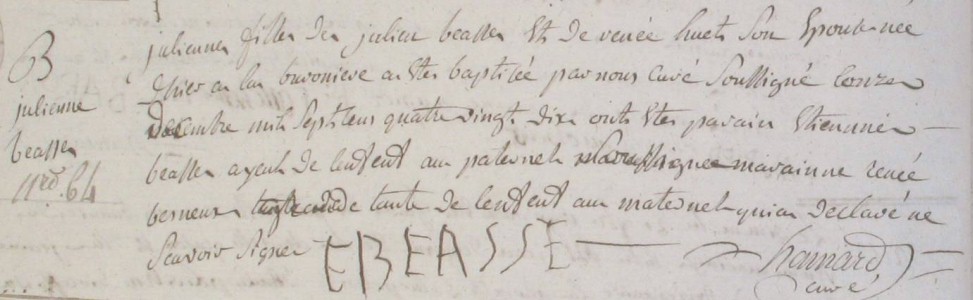 B
julienne
beasse
julienne fille de julien beasse Et de renée huet son Epouse née
hier a la buroniere a Ete baptisée par nous curé soussigné le onze
Decembre mil sept cens quatre vingt dix ont Ete parain Etienne
beasse ayeul de lenfent au paternel soussigne maraine renée
besneux tante de lenfent au maternel qui a declaré ne
scavoir signer
EBEASSE
hamard
curé